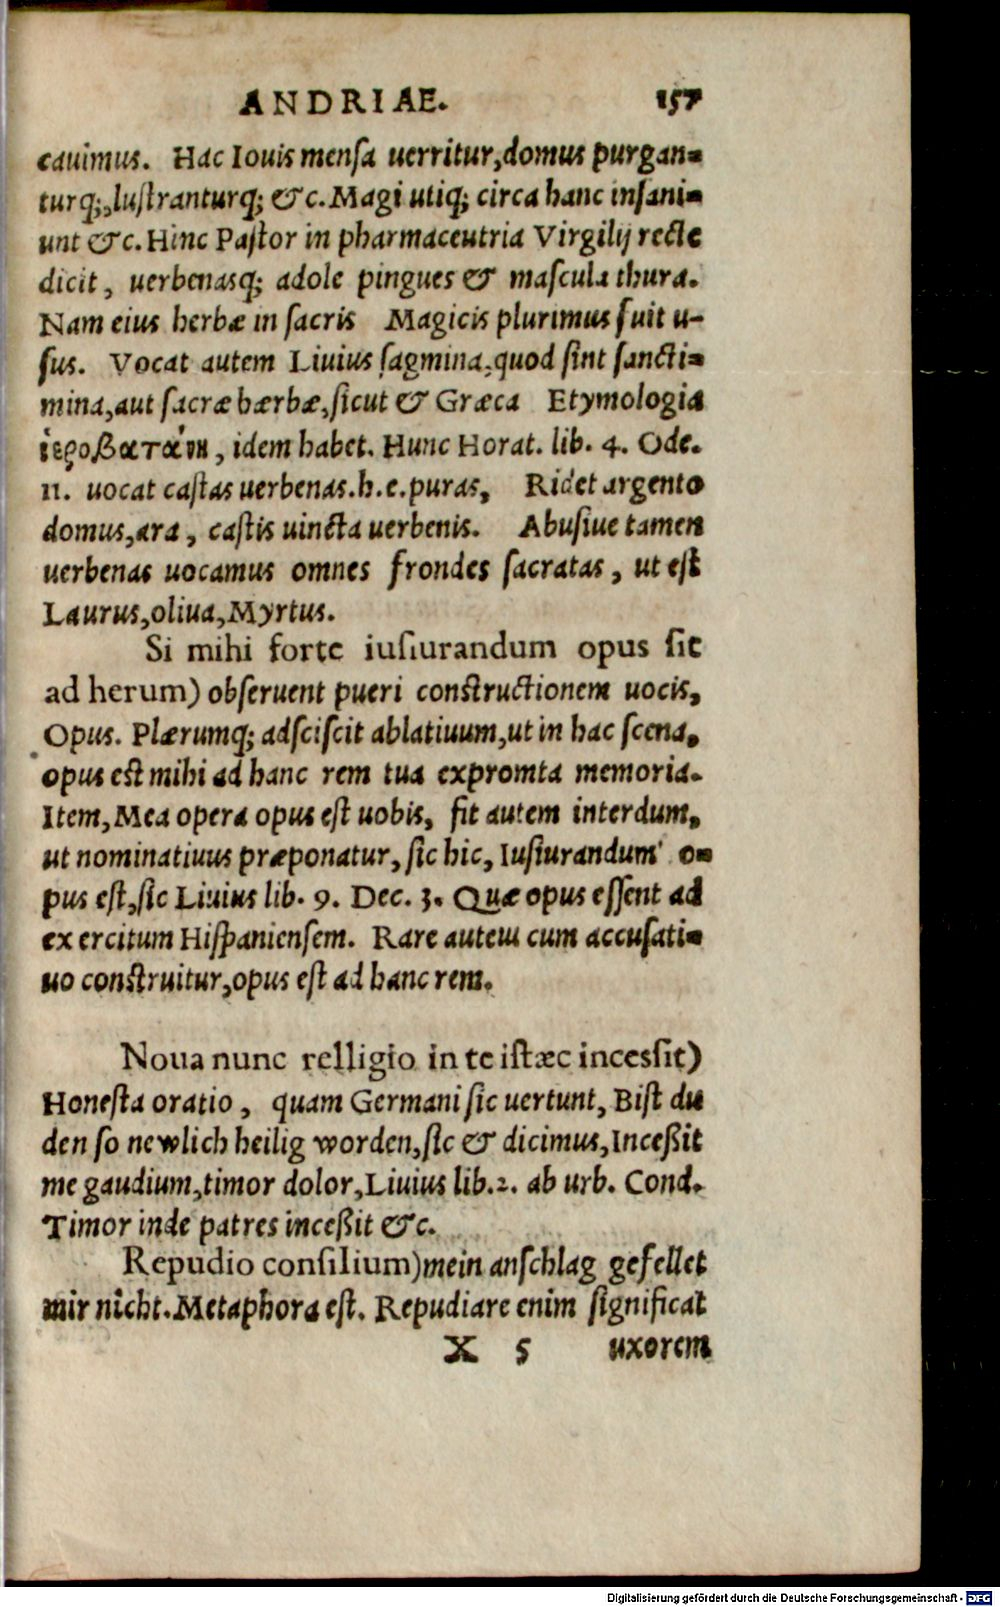 ANDRIAE. 157
cauimus. Hac Iouis mensa uerritur, domus purgan-
turq;, lustranturq; &c. Magi utiq; circa hanc insani-
unt &c. Hinc Pastor in pharmaceutria Virgilij recte
dicit, uerbenasq; adole pingues & mascula thura.
Nam eius herbæ in sacris Magicis plurimus fuit u-
sus. Vocat autem Liuius sagmina, quod sint sancti-
mina, aut sacræ hærbæ, sicut & Græca Etymologia
ἱεροβατάνη, idem habet. Hunc Horat. lib. 4. Ode.
11. uocat castas uerbenas. h. e. puras, Ridet argento
domus, ara, castis uincta uerbenis. Abusiue tamen
uerbenas uocamus omnes frondes sacratas, ut est
Laurus, oliua, Myrtus.
Si mihi forte iusiurandum opus sit
ad herum) obseruent pueri constructionem uocis,
Opus. Plærumq; adsciscit ablatiuum, ut in hac scena,
opus est mihi ad hanc rem tua expromta memoria.
Item, Mea opera opus est uobis, fit autem interdum,
ut nominatiuus præponatur, sic hic, Iusiurandum o-
pus est, sic Liuius lib. 9. Dec. 3. Quæ opus essent ad
exercitum Hispaniensem. Rare autem cum accusati-
uo construitur, opus est ad hanc rem.
Noua nunc relligio in te istæc incessit)
Honesta oratio, quam Germani sic uertunt, Bist du
den so newlich heilig worden, sic & dicimus, Inceßit
me gaudium, timor dolor, Liuius lib. 2. ab urb. Cond.
Timor inde patres inceßit &c.
Repudio consilium) mein anschlag gefellet
mir nicht. Metaphora est. Repudiare enim significat
X 5 uxorem
Digitalisierung gefördert durch die Deutsche Forschungsgemeinschaft - DFG